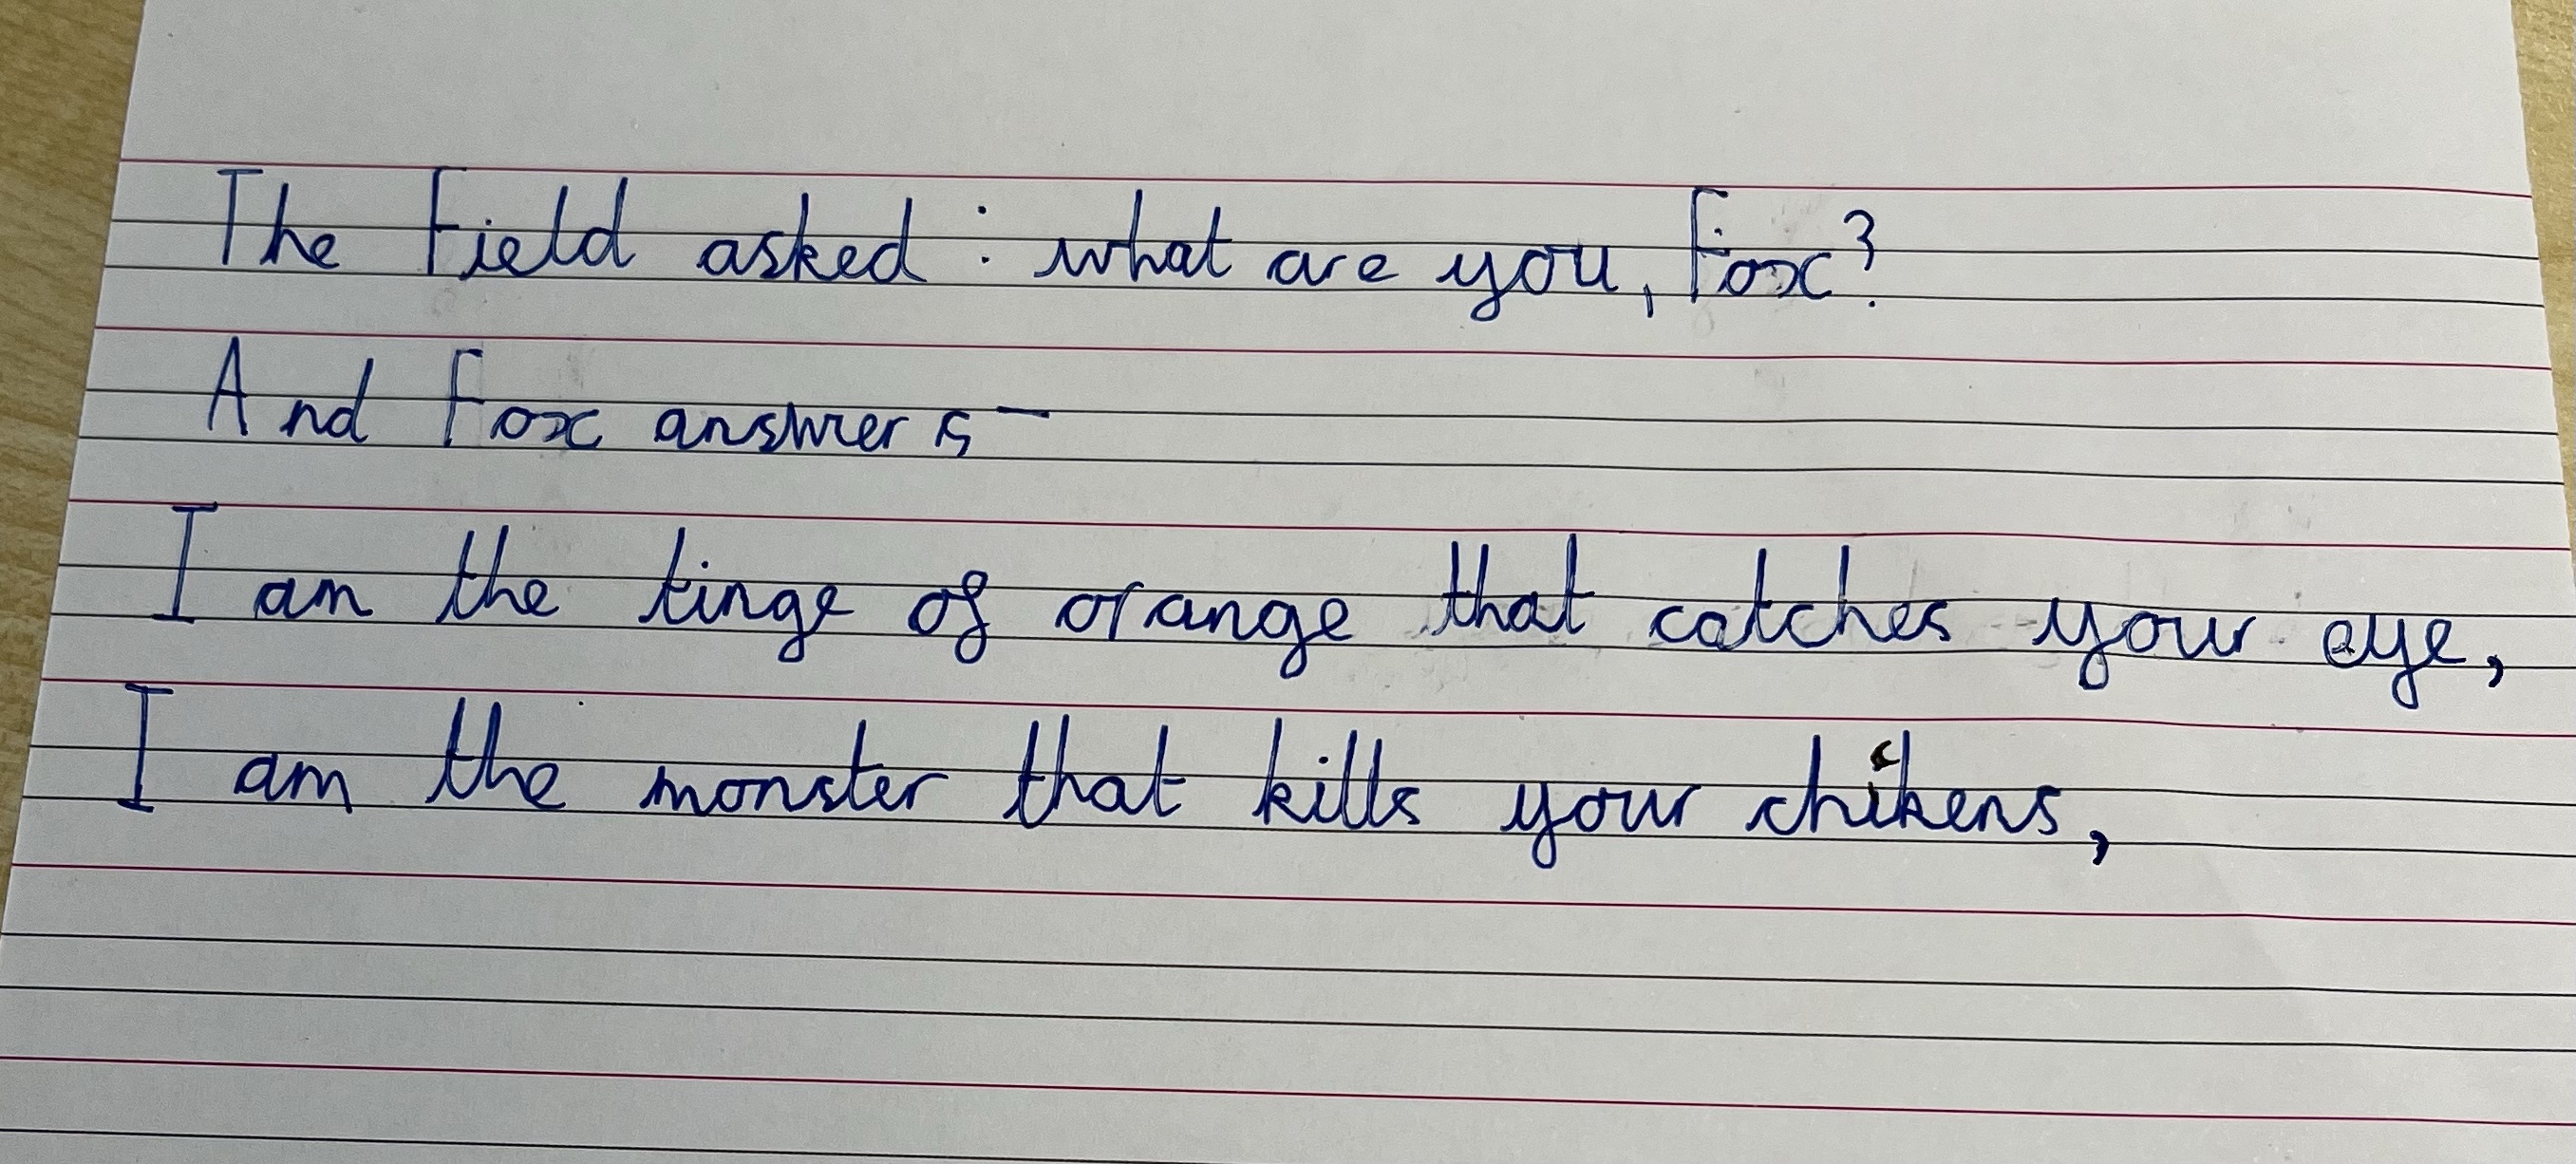 The Field asked : what are you, Fox?
And Fox answers -
I am the tinge of orange that catches your eye,
I am the monster that kills your chickens,